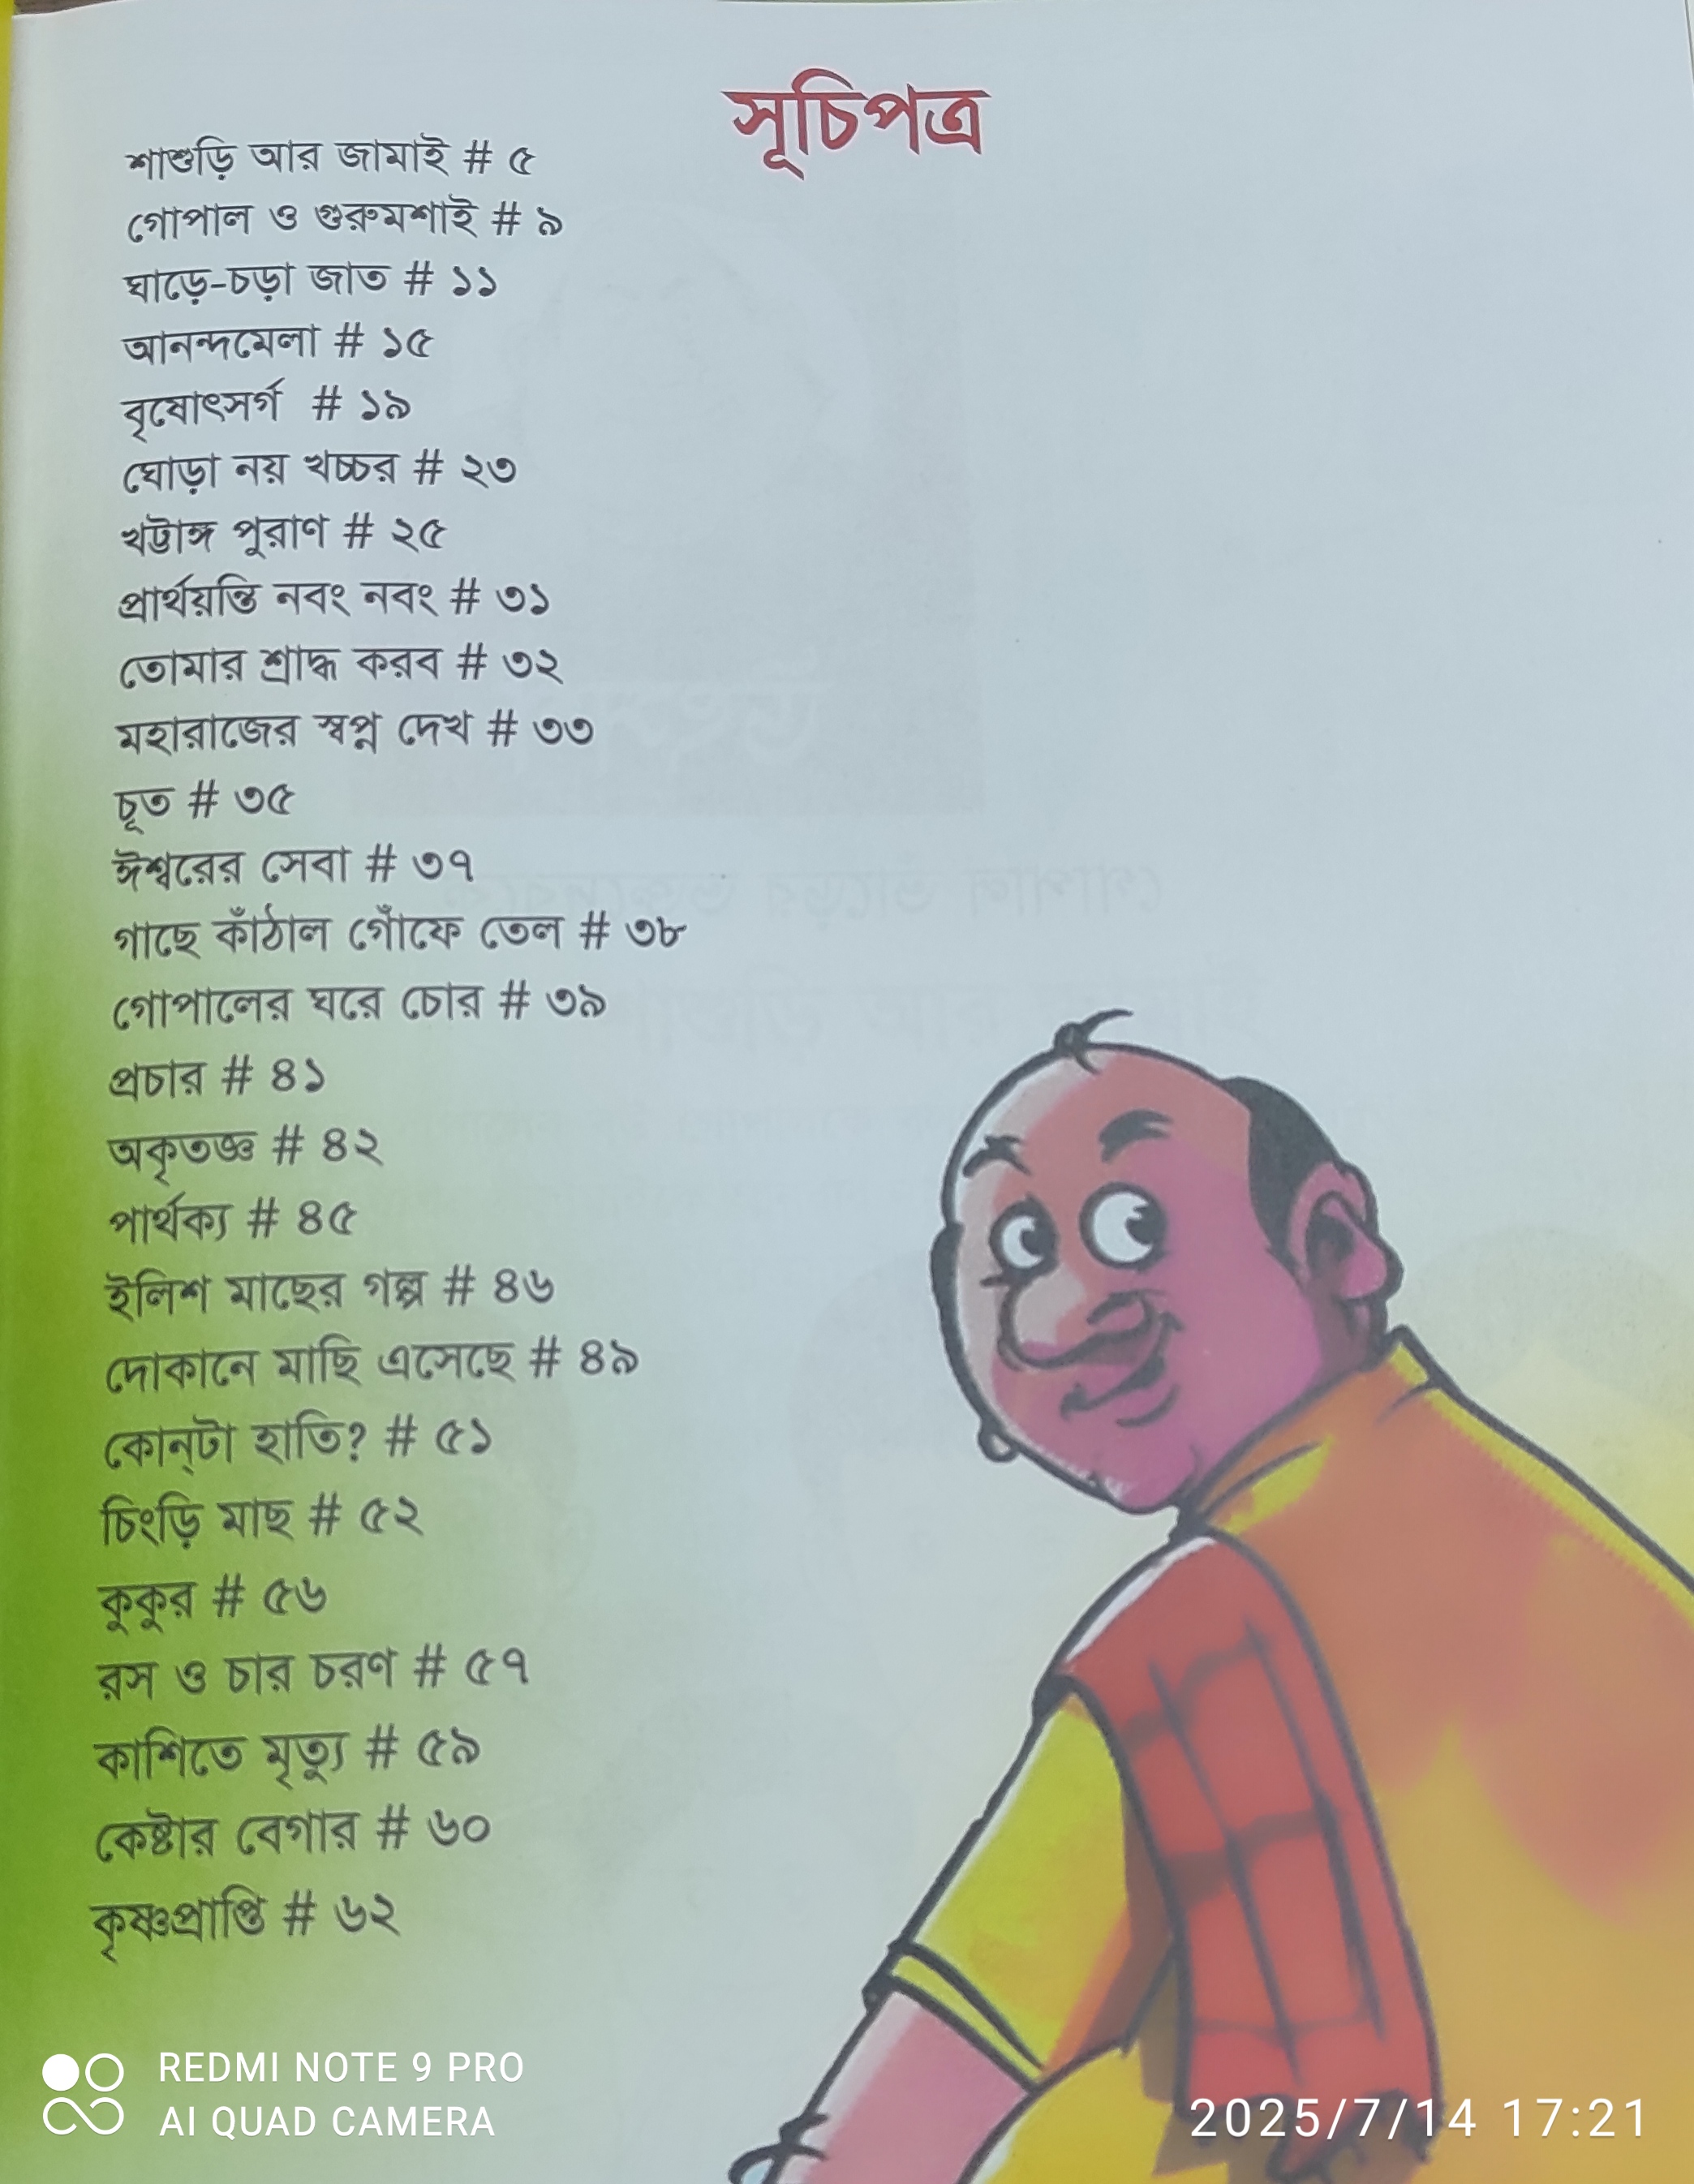 সূচিপত্র
শাশুড়ি আর জামাই # ৫
গোপাল ও গুরুমশাই # ৯
ঘাড়ে-চড়া জাত # ১১
আনন্দমেলা # ১৫
বৃষোৎসর্গ # ১৯
ঘোড়া নয় খচ্চর # ২৩
খট্টাঙ্গ পুরাণ # ২৫
প্রার্থয়ন্তি নবং নবং # ৩১
তোমার শ্রাদ্ধ করব # ৩২
মহারাজের স্বপ্ন দেখ # ৩৩
চূত # ৩৫
ঈশ্বরের সেবা # ৩৭
গাছে কাঁঠাল গোঁফে তেল # ৩৮
গোপালের ঘরে চোর # ৩৯
প্রচার # ৪১
অকৃতজ্ঞ # ৪২
পার্থক্য # ৪৫
ইলিশ মাছের গল্প # ৪৬
দোকানে মাছি এসেছে # ৪৯
কোন্‌টা হাতি? # ৫১
চিংড়ি মাছ # ৫২
কুকুর # ৫৬
রস ও চার চরণ # ৫৭
কাশিতে মৃত্যু # ৫৯
কেষ্টার বেগার # ৬০
কৃষ্ণপ্রাপ্তি # ৬২
REDMI NOTE 9 PRO
AI QUAD CAMERA
2025/7/14 17:21